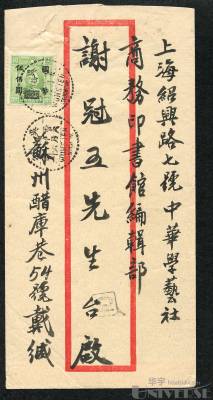 上海紹興路七號中華學藝社
商務印書館編輯部
謝冠五先生台啟
蘇州醋庫巷54號戴緘
國幣
伍佰圓
華宇
UNIVERSE